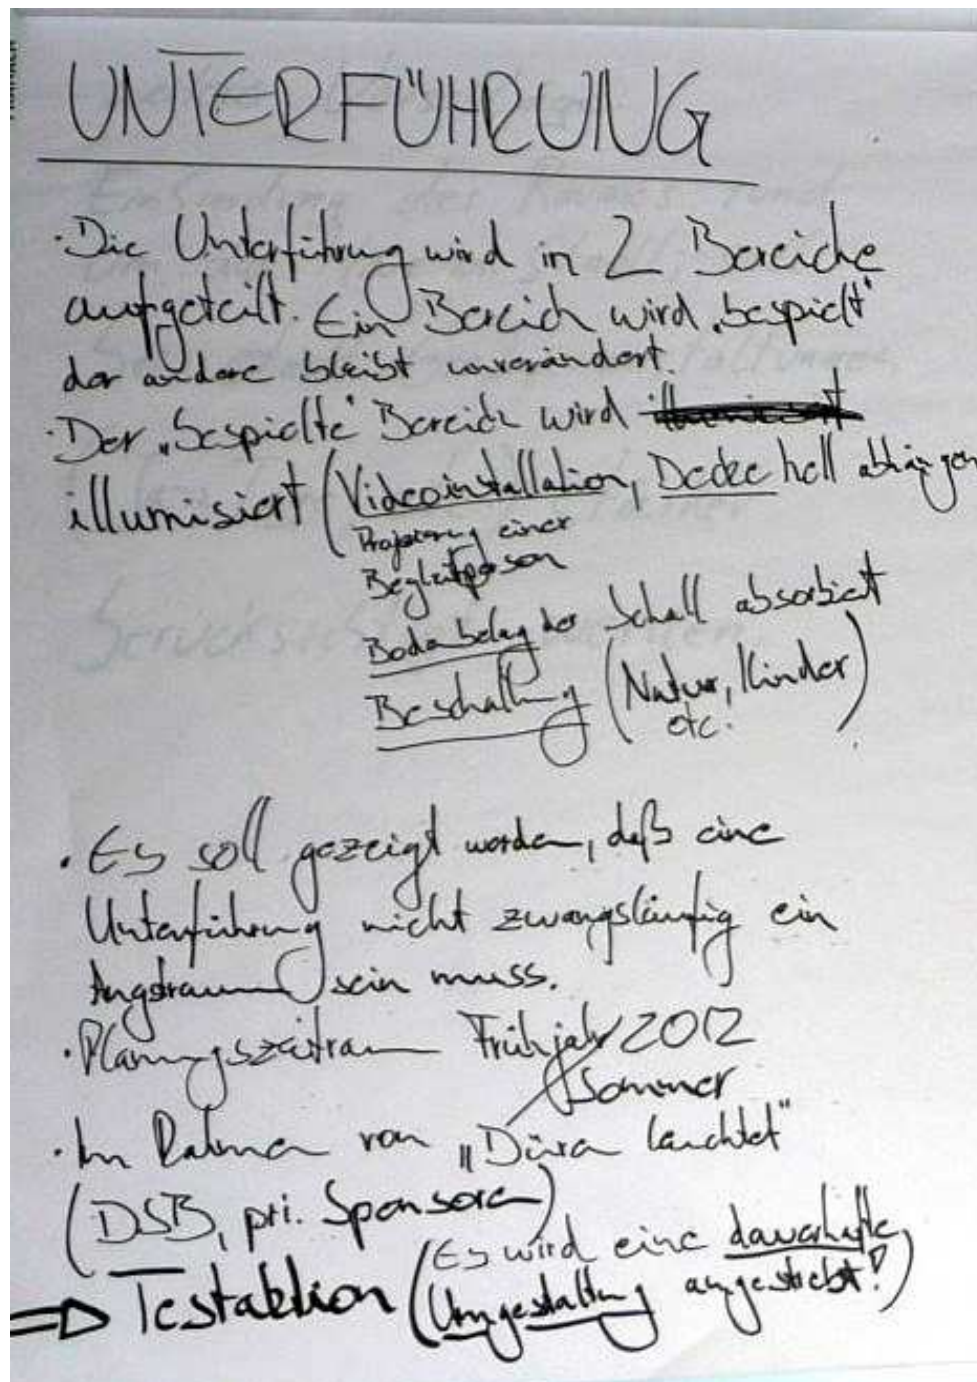 UNTERFÜHRUNG
· Die Unterführung wird in 2 Bereiche
aufgeteilt. Ein Bereich wird „bespielt“
der andere bleibt unverändert.
· Der „bespielte“ Bereich wird
illumisiert (Videoinstallation, Decke hell abhängen
Projizierung einer
Begleitperson
Bodenbelag der Schall absorbiert
Beschallung (Natur, Kinder)
etc.
· Es soll gezeigt werden, daß eine
Unterführung nicht zwangsläufig ein
Angstraum sein muss.
· Planungszeitraum Frühjahr 2012
Sommer
· Im Rahmen von „Düren leuchtet“
(DSB, pri. Sponsoren)
⇒ Testaktion (Es wird eine dauerhafte
Umgestaltung angestrebt!)